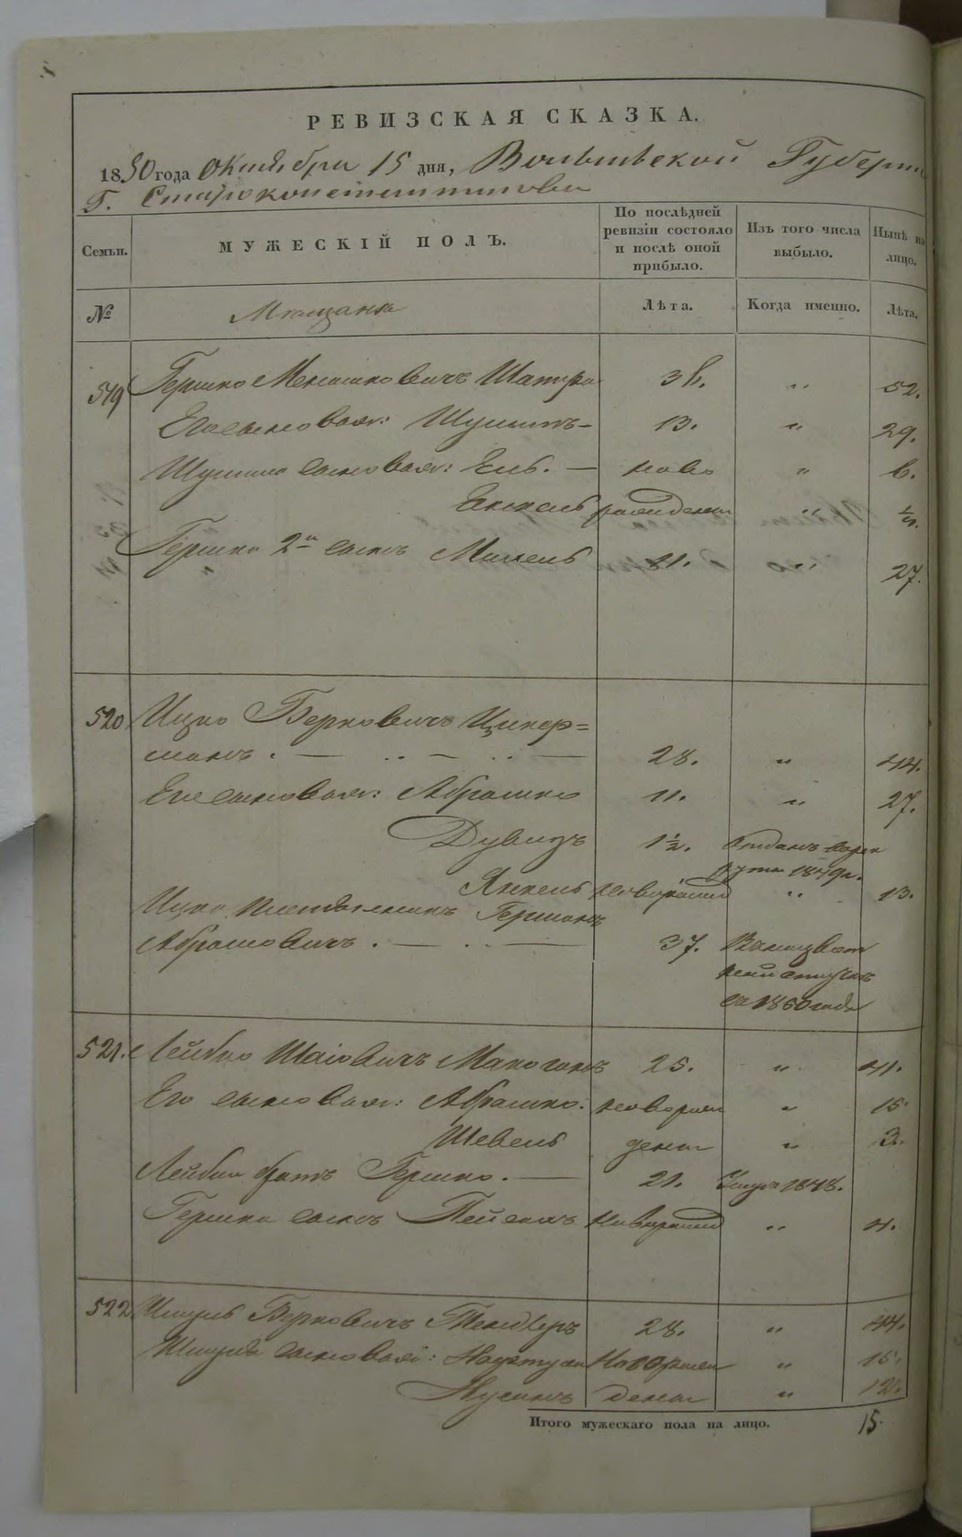 РЕВИЗСКАЯ СКАЗКА.
1850 года октября 15 дня, Волынской Губернии
Г. Староконстантинова
Семьи. МУЖЕСКІЙ ПОЛЪ. По послѣдней ревизіи состояло и послѣ оной прибыло. Изъ того числа выбыло. Нынѣ на лицо.
№ Мещане Лѣта. Когда именно. Лѣта.
519 Гершко Меношковичъ Шапира 36. " 52.
Его сыновья: Шулимъ — 13. " 29.
сыновья: — ново " 6.
рожденны " ½.
Гершка 2й сынъ 11. " 27.
520 Ицко Берковичъ Цимер=
манъ. — 28. " 44.
Его сыновья: Абрашко 11. " 27.
Дувидъ 1½. Отданъ въ рек
руты 1849г.
Янкель новорожд " 13.
Ицка племянникъ Гершонъ
Абрамовичъ. — 37.
с 1850 года
521. Лейбко Шаіовичъ Макогонъ 25. " 41.
Его сыновья: Абрашко. новорож " 15.
Шевель дены " 3.
Лейбы братъ Гершко. — 21. Умеръ 1848.
Гершка сынъ Пейсахъ новорожд " 4.
522 Берковичъ 28. " 44.
сыновья: новорож " 15.
Нусинъ дены " 12.
Итого мужескаго пола на лицо. 15.